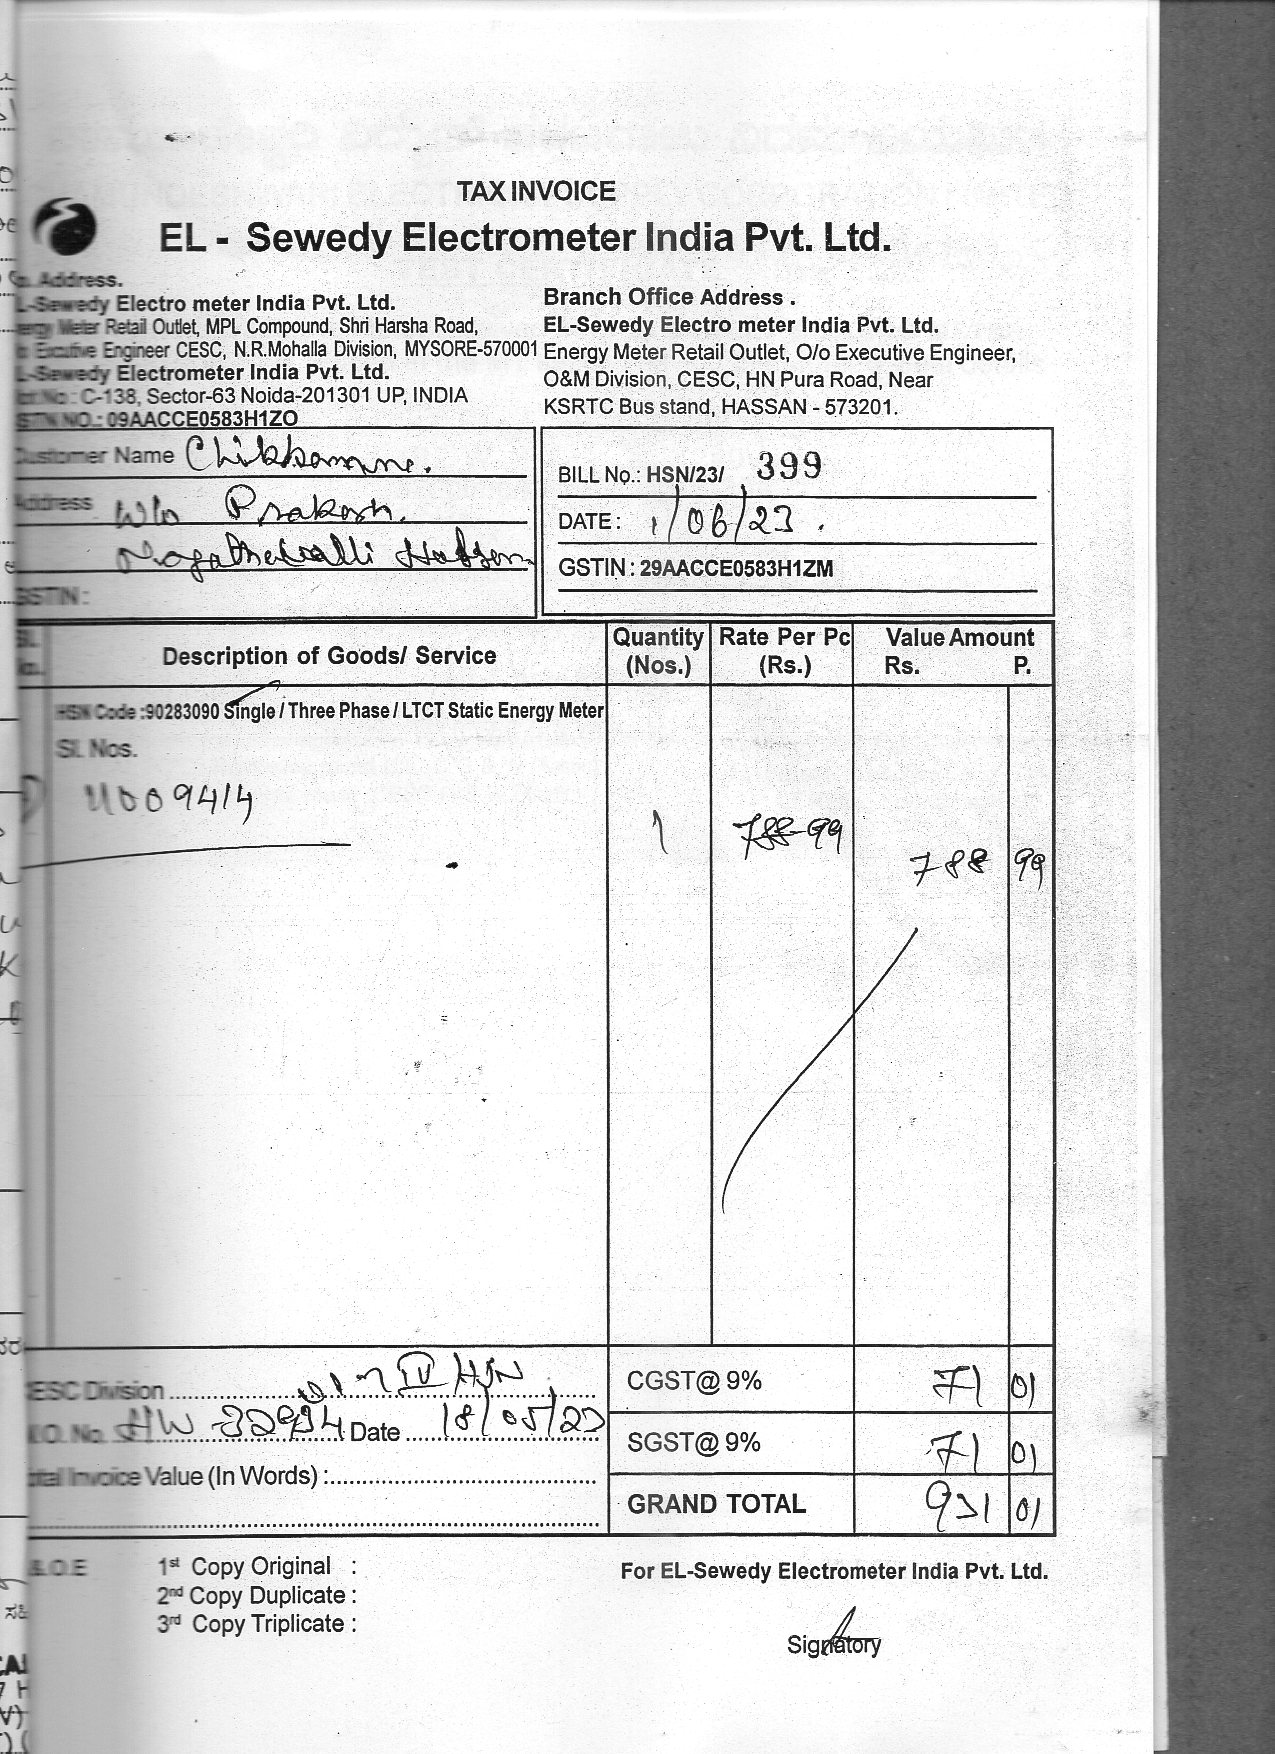 TAX INVOICE
EL - Sewedy Electrometer India Pvt. Ltd.
Address.
L-Sewedy Electro meter India Pvt. Ltd.
Meter Retail Outlet, MPL Compound, Shri Harsha Road,
Engineer CESC, N.R.Mohalla Division, MYSORE-570001
L-Sewedy Electrometer India Pvt. Ltd.
C-138, Sector-63 Noida-201301 UP, INDIA
NO.: 09AACCE0583H1ZO
Branch Office Address .
EL-Sewedy Electro meter India Pvt. Ltd.
Energy Meter Retail Outlet, O/o Executive Engineer,
O&M Division, CESC, HN Pura Road, Near
KSRTC Bus stand, HASSAN - 573201.
Customer Name
Address W/o Prakash.
GSTIN :
BILL No.: HSN/23/ 399
DATE : 1/06/23 .
GSTIN : 29AACCE0583H1ZM
Description of Goods/ Service
Quantity (Nos.)
Rate Per Pc (Rs.)
Value Amount
Rs. P.
HSN Code :90283090 Single / Three Phase / LTCT Static Energy Meter
Sl. Nos.
1 788-99
788 99
CESC Division
CGST@ 9% 71 01
No. HW Date 18/05/23
SGST@ 9% 71 01
Invoice Value (In Words) :
GRAND TOTAL 931 01
E.&.O.E
1st Copy Original :
2nd Copy Duplicate :
3rd Copy Triplicate :
For EL-Sewedy Electrometer India Pvt. Ltd.
Signatory